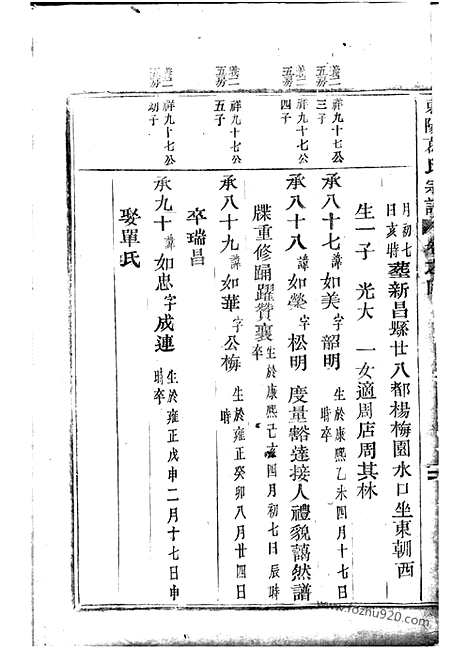 東陽葛氏宗譜
月初七
日亥時墓新昌縣廿八都楊梅園水口坐東朝西
生一子 光大 一女適周店周其林
卷二
五房
祥九十七公
三子
承八十七諱如美字韶明 生於康熙乙未四月十七日
時卒
卷二
五房
祥九十七公
四子
承八十八諱如榮字松明 度量豁達接人禮貌藹然譜
牒重修踊躍贊襄 生於康熙己亥四月初七日辰時
卒
卷二
五房
祥九十七公
五子
承八十九諱如華字公梅 生於雍正癸卯八月廿四日
時卒
卒瑞昌
卷二
五房
祥九十七公
幼子
承九十諱如忠字成連 生於雍正戊申二月十七日申
時卒
娶單氏
www.fozhu920.com